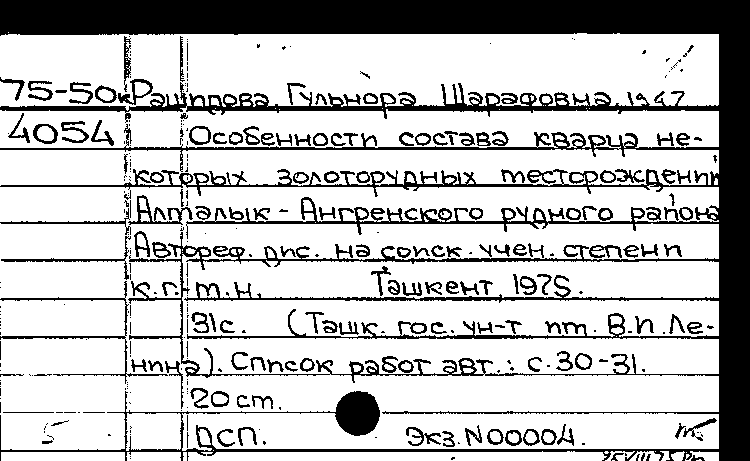 75-50к Рашидова, Гульнора Шарафовна, 1947
4054 Особенности состава кварца не-
которых золоторудных месторождений
Алмалык - Ангренского рудного района
Автореф. дис. на соиск. учен. степени
к.г.-м.н. Ташкент, 1975.
31с. (Ташк. гос. ун-т им. В.И. Ле-
нина). Список работ авт.: с. 30-31.
20 cm.
5 ДСП. Экз. N00004.